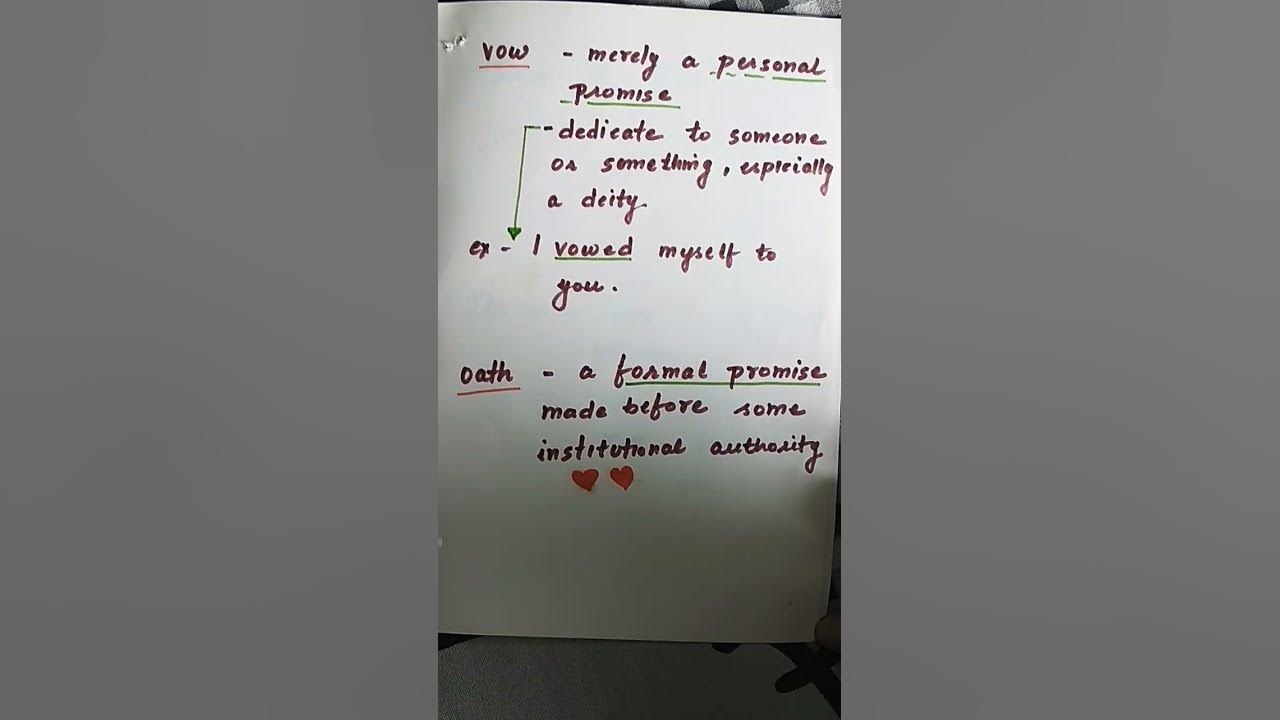 vow - merely a personal
promise
- dedicate to someone
or something, especially
a deity.
ex - I vowed myself to
you.
oath - a formal promise
made before some
institutional authority